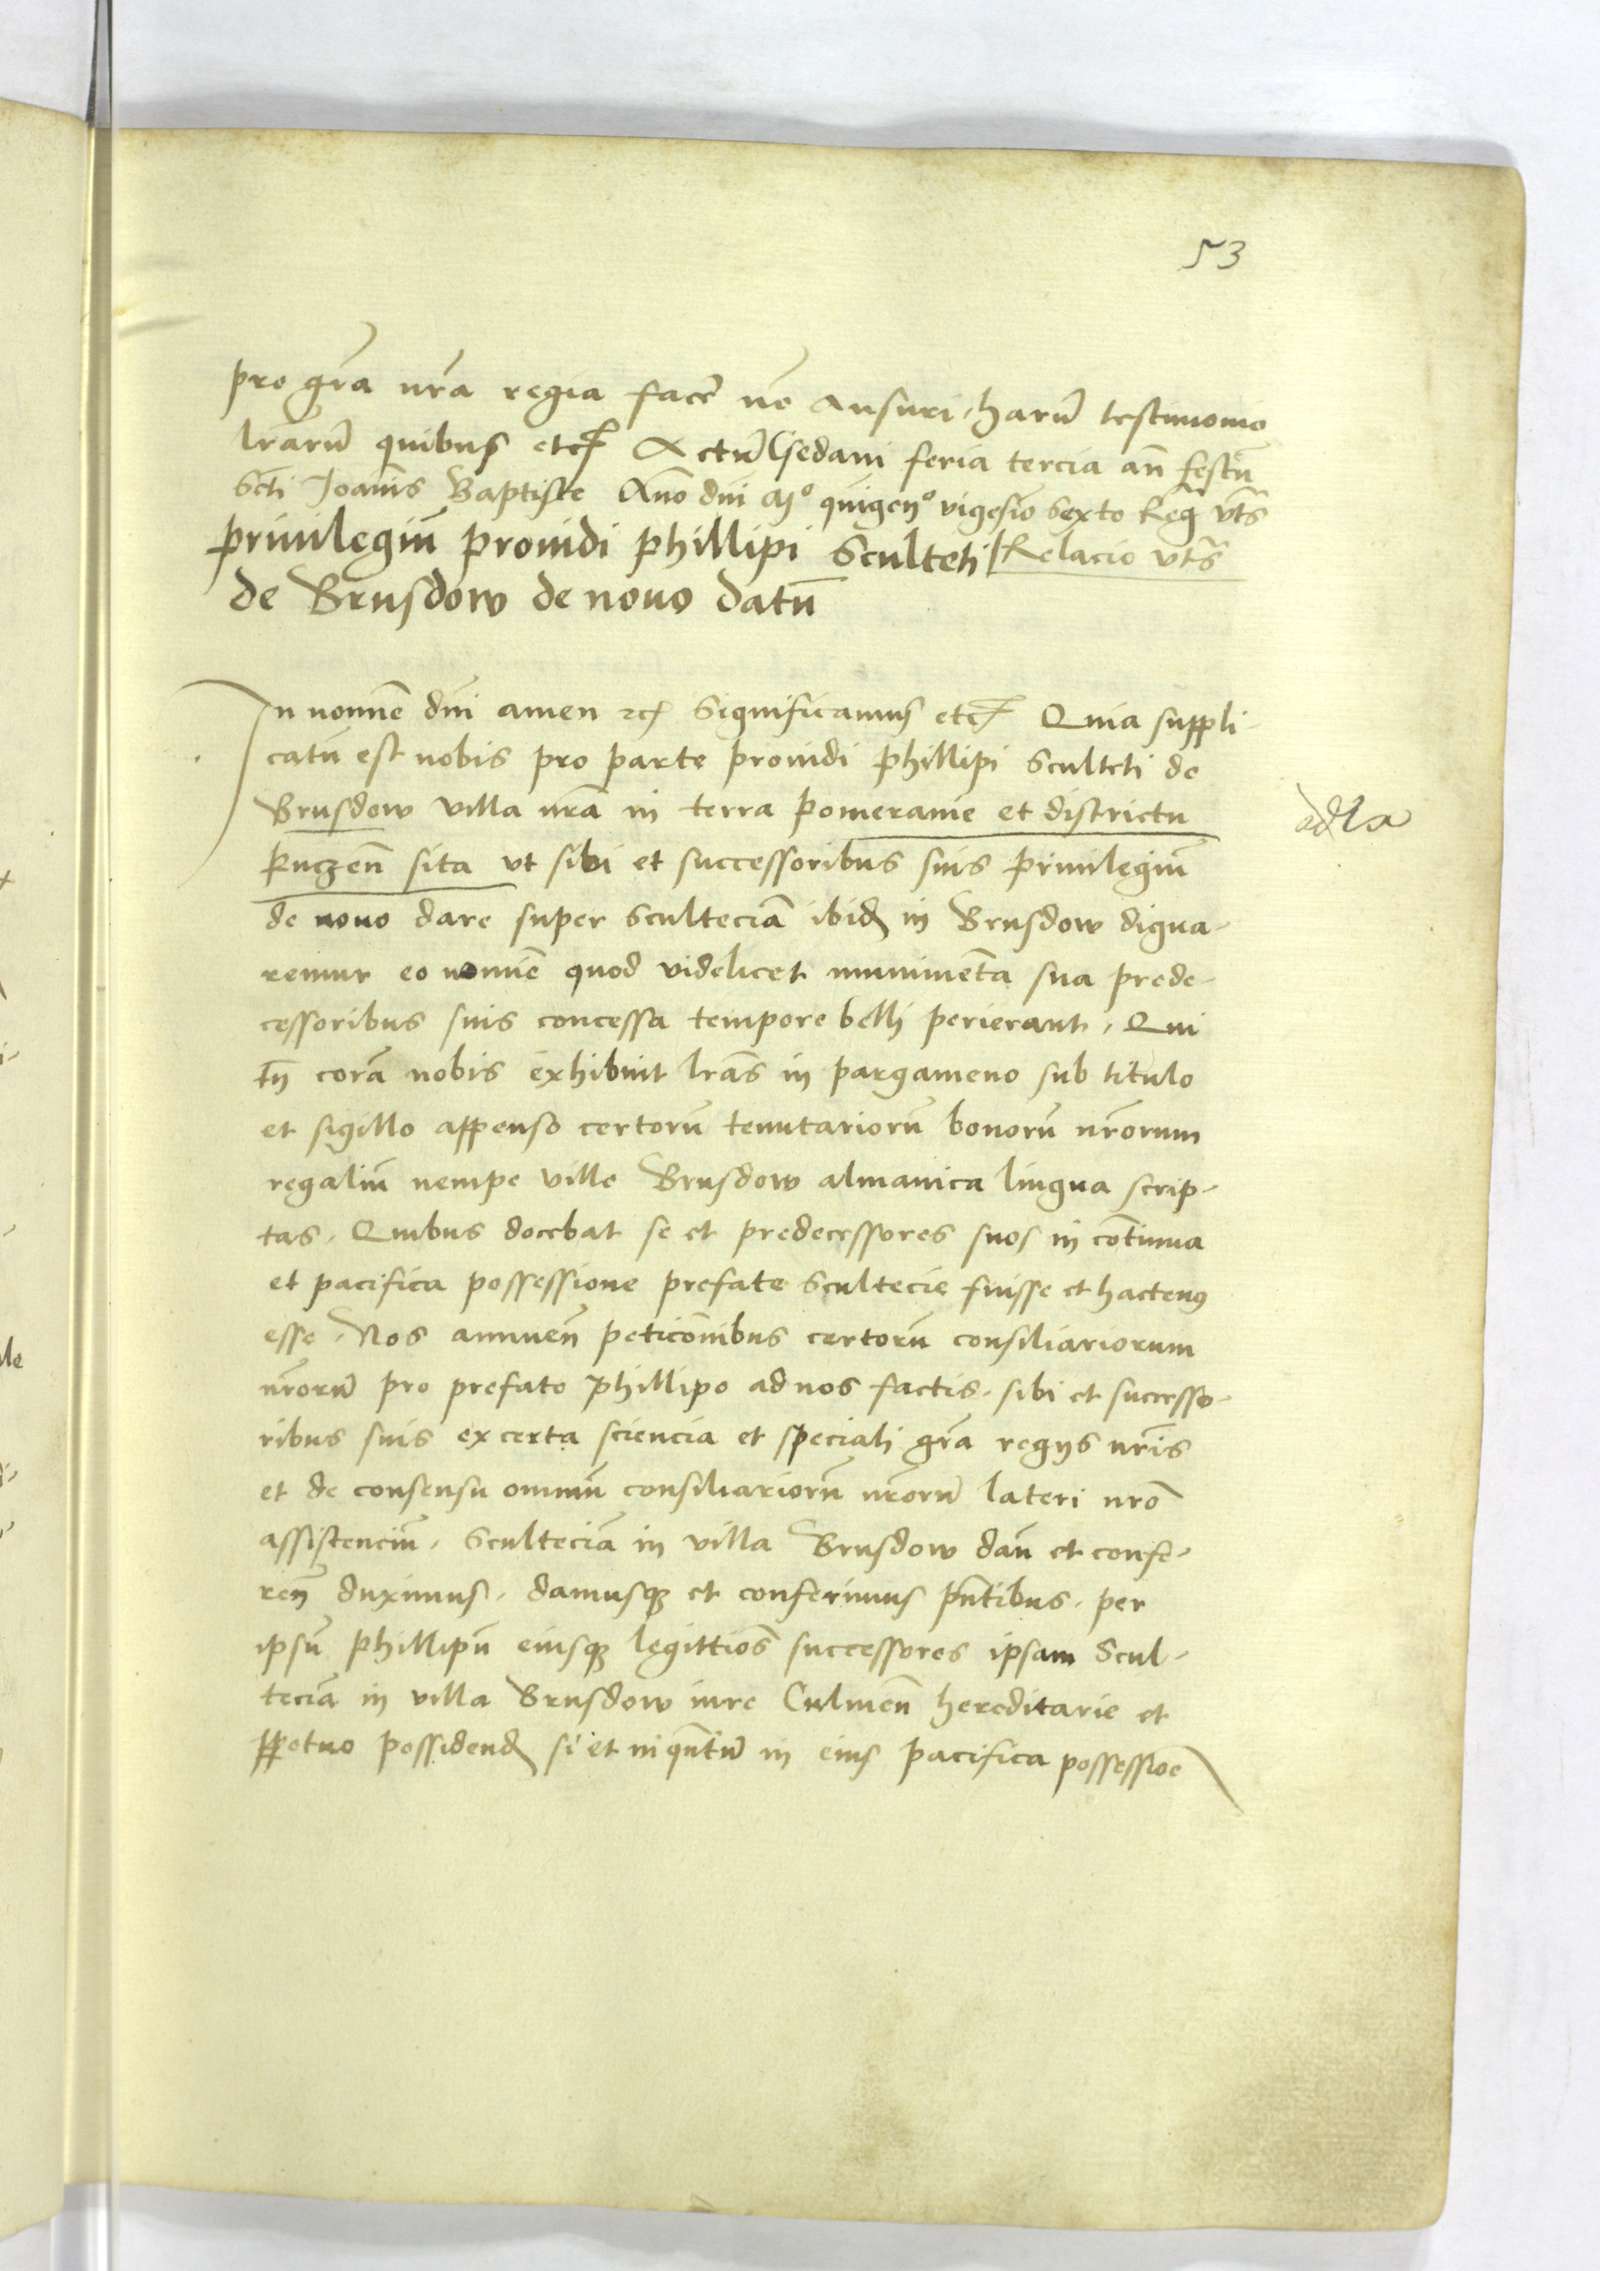 53
pro gr̃a nr̃a regia facẽ nõ ausuri. harũ testimonio
lr̃arũ quibus etc̃ Actũ Gedani feria tercia añ festũ
Scti Joanĩs Baptiste Año dñi Mº quĩgenº vigesĩo sexto Reg̃ vt̃s
priuilegiũ prouidi phillipi Sculteti Relacio vt̃s
de Brusdow de nouo datũ
In nomĩe dñi amen ꝛcꝭ Significamus etc̃ Quia suppli-
catũ est nobis pro parte prouidi phillipi Sculteti de
Brusdow villa nr̃a in terra pomeranie et districtu
puczeñ sita vt sibi et successoribus suis priuilegiũ
de nouo dare super Sculteciã ibid̃ in Brusdow digna-
remur eo nomĩe quod videlicet munimẽta sua prede-
cessoribus suis concessa tempore belli perierant. Qui
tñ corã nobis exhibuit lr̃as in pargameno sub titulo
et sigillo appenso certorũ tenutariorũ bonorũ nr̃orum
regaliũ nempe ville Brusdow almanica lingua scrip-
tas. Quibus docebat se et predecessores suos in cõtinua
et pacifica possessione prefate Scultecie fuisse et hactenus
esse. Nos annueñ peticõnibus certorũ consiliariorum
nr̃orũ pro prefato Phillipo ad nos factis. sibi et successo-
ribus suis ex certa sciencia et speciali gr̃a regijs nr̃is
et de consensu omniũ consiliariorũ nr̃orũ lateri nr̃o
assistenciũ. Sculteciã in villa Brusdow dañ et confe-
reñ duximus. damusqꝫ et conferimus pñtibus. per
ipsũ Phillipũ eiusqꝫ legittiõs successores ipsam Scul-
teciã in villa Brusdow iure Culmeñ hereditarie et
ꝑpetuo possidend̃ si et inqñtũ in eius pacifica possessiõe